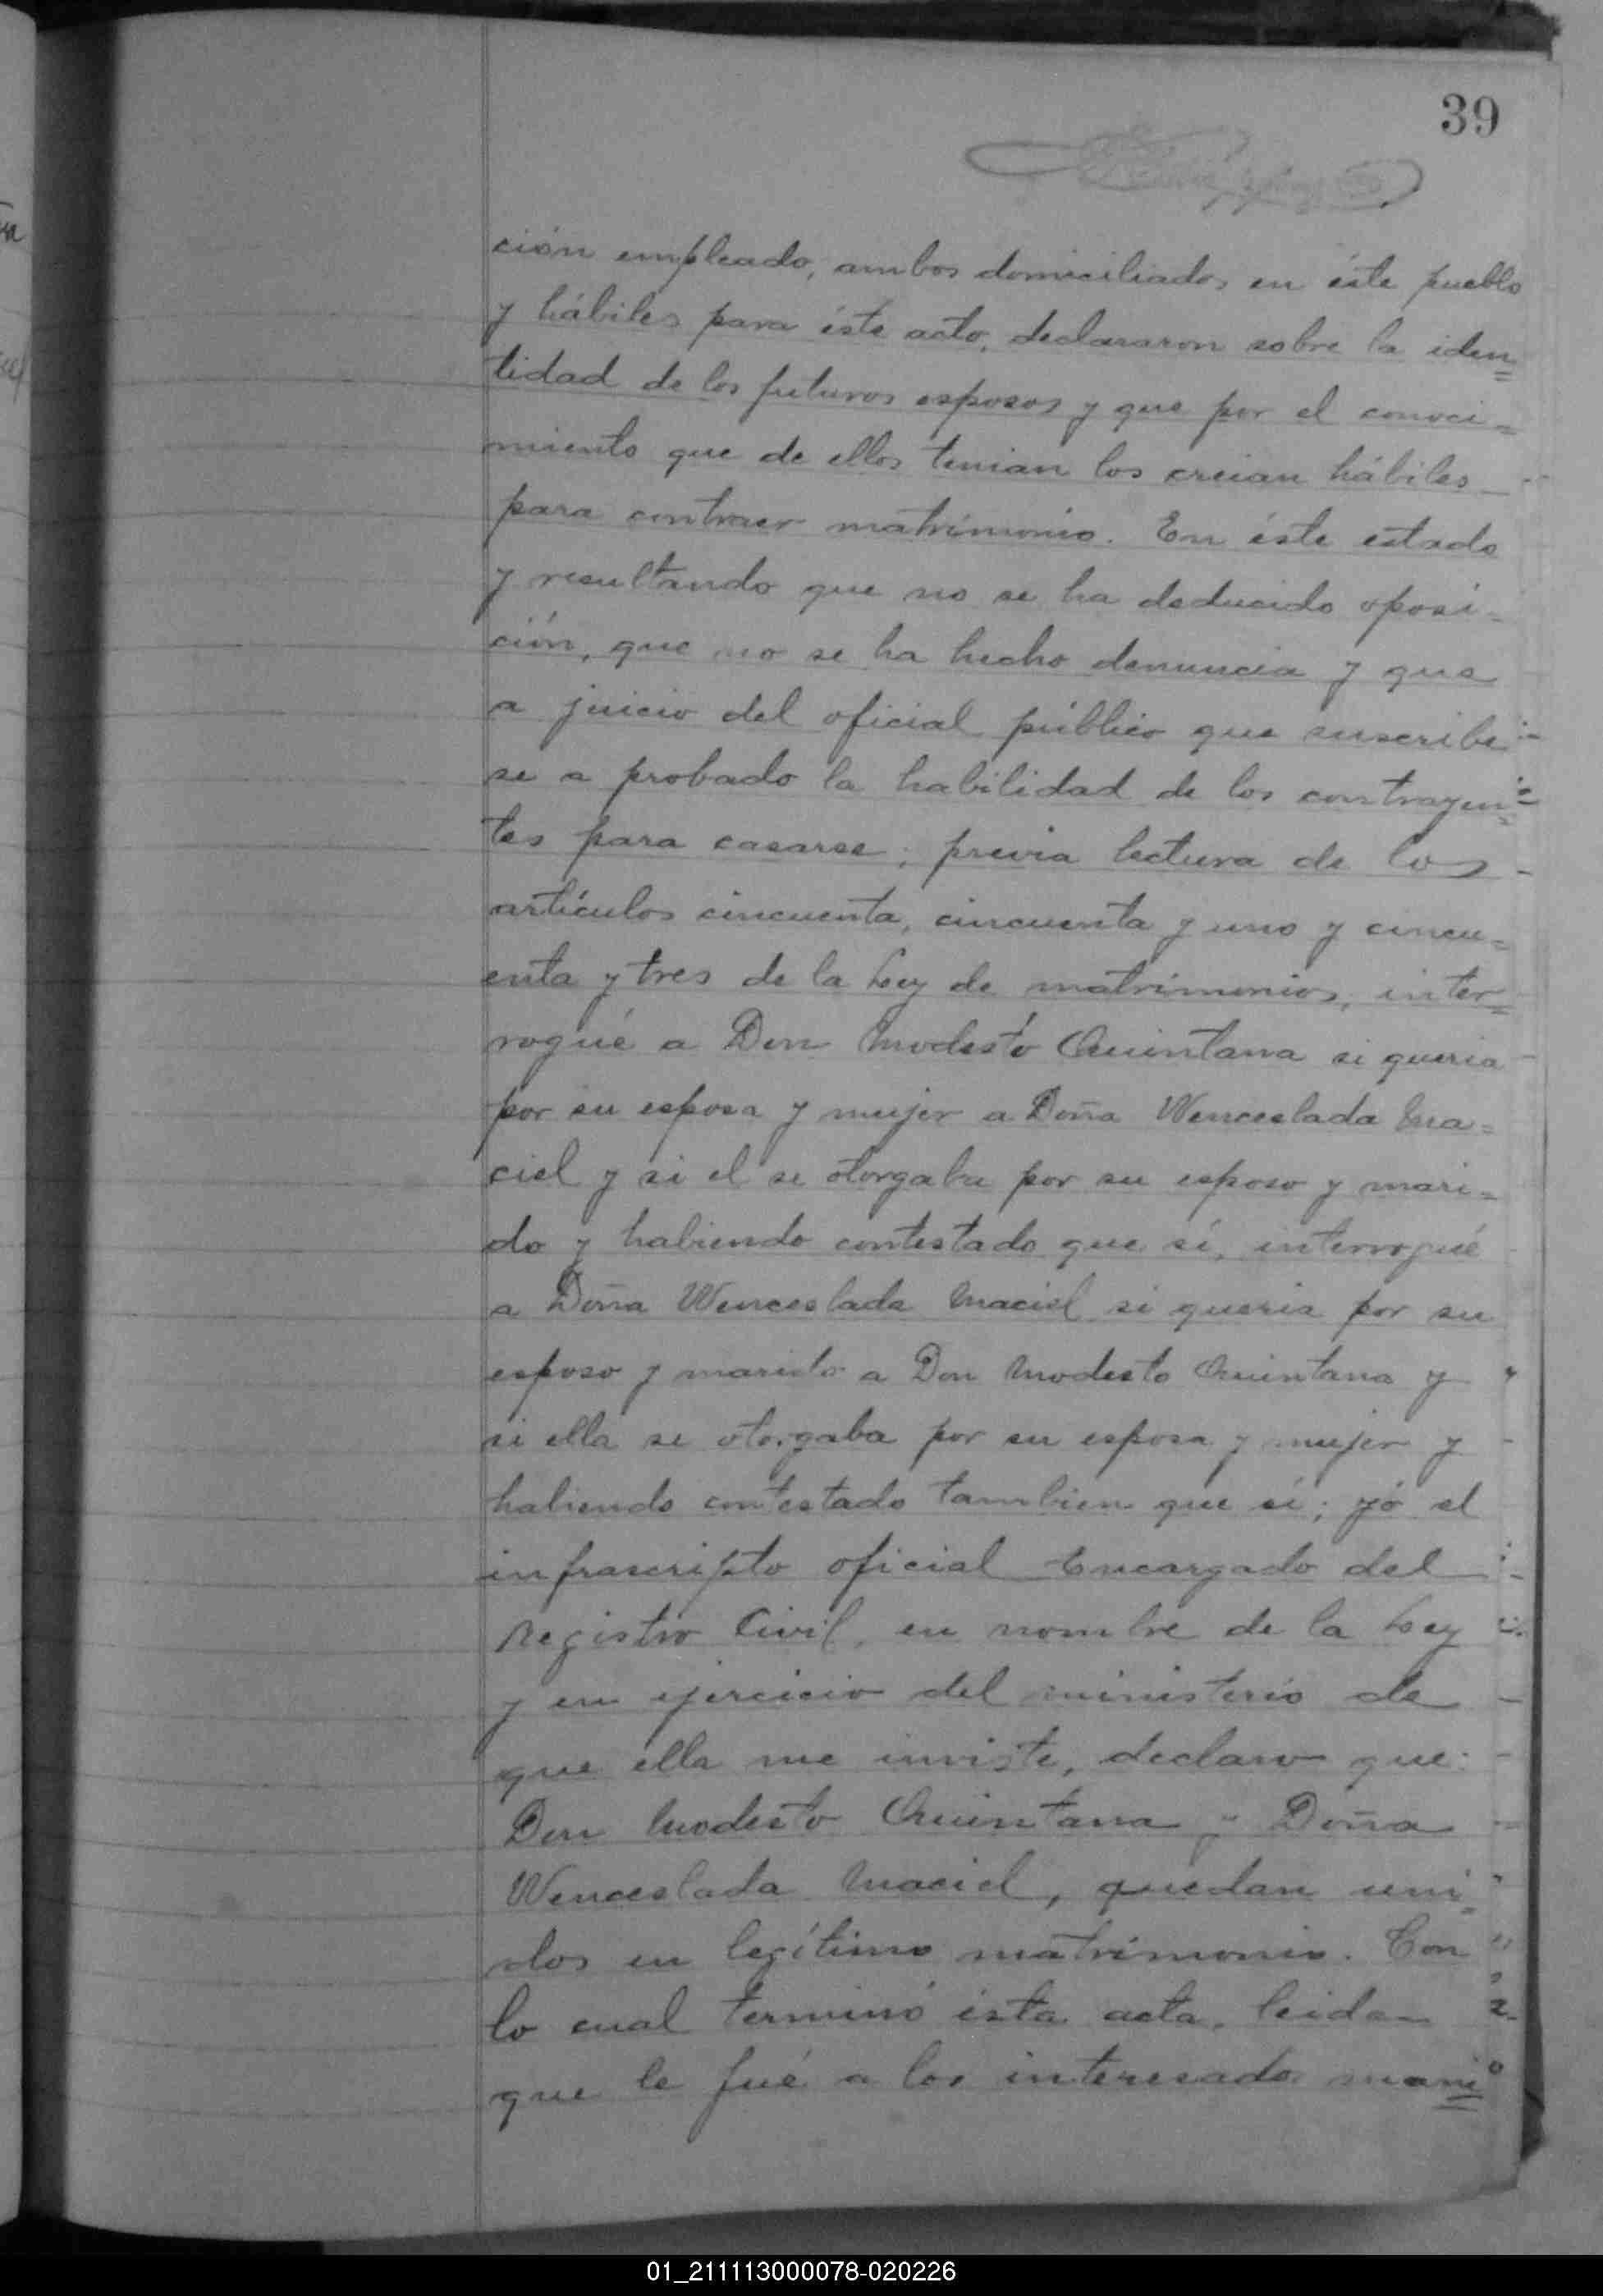 39
ción empleado, ambos domiciliados en éste pueblo
y hábiles para éste acto, declararon sobre la iden=
tidad de los futuros esposos y que por el conoci=
miento que de ellos tenian los creian hábiles
para contraer matrimonio. En éste estado
y resultando que no se ha deducido oposi-
ción, que no se ha hecho denuncia y que
a juicio del oficial público que suscribe
se a probado la habilidad de los contrayen=
tes para casarse; previa lectura de los
artículos cincuenta, cincuenta y uno y cincu=
enta y tres de la Ley de matrimonios, inter=
rogué a Don Modesto Quintana si queria
por su esposa y mujer a Doña Wenceslada Ma=
ciel y si el se otorgaba por su esposo y mari=
do y habiendo contestado que sí, interrogué
a Doña Wenceslada Maciel si queria por su
esposo y marido a Don Modesto Quintana y
si ella se otorgaba por su esposa y mujer y
habiendo contestado tambien que sí; yó el
infrascripto oficial Encargado del
Registro Civil, en nombre de la Ley
y en ejercicio del ministerio de
que ella me inviste, declaro que:
Don Modesto Quintana y Doña
Wenceslada Maciel, quedan uni=
dos en legítimo matrimonio. Con
lo cual terminó ésta acta, leida
que le fué a los interesados mani=
01_211113000078-020226